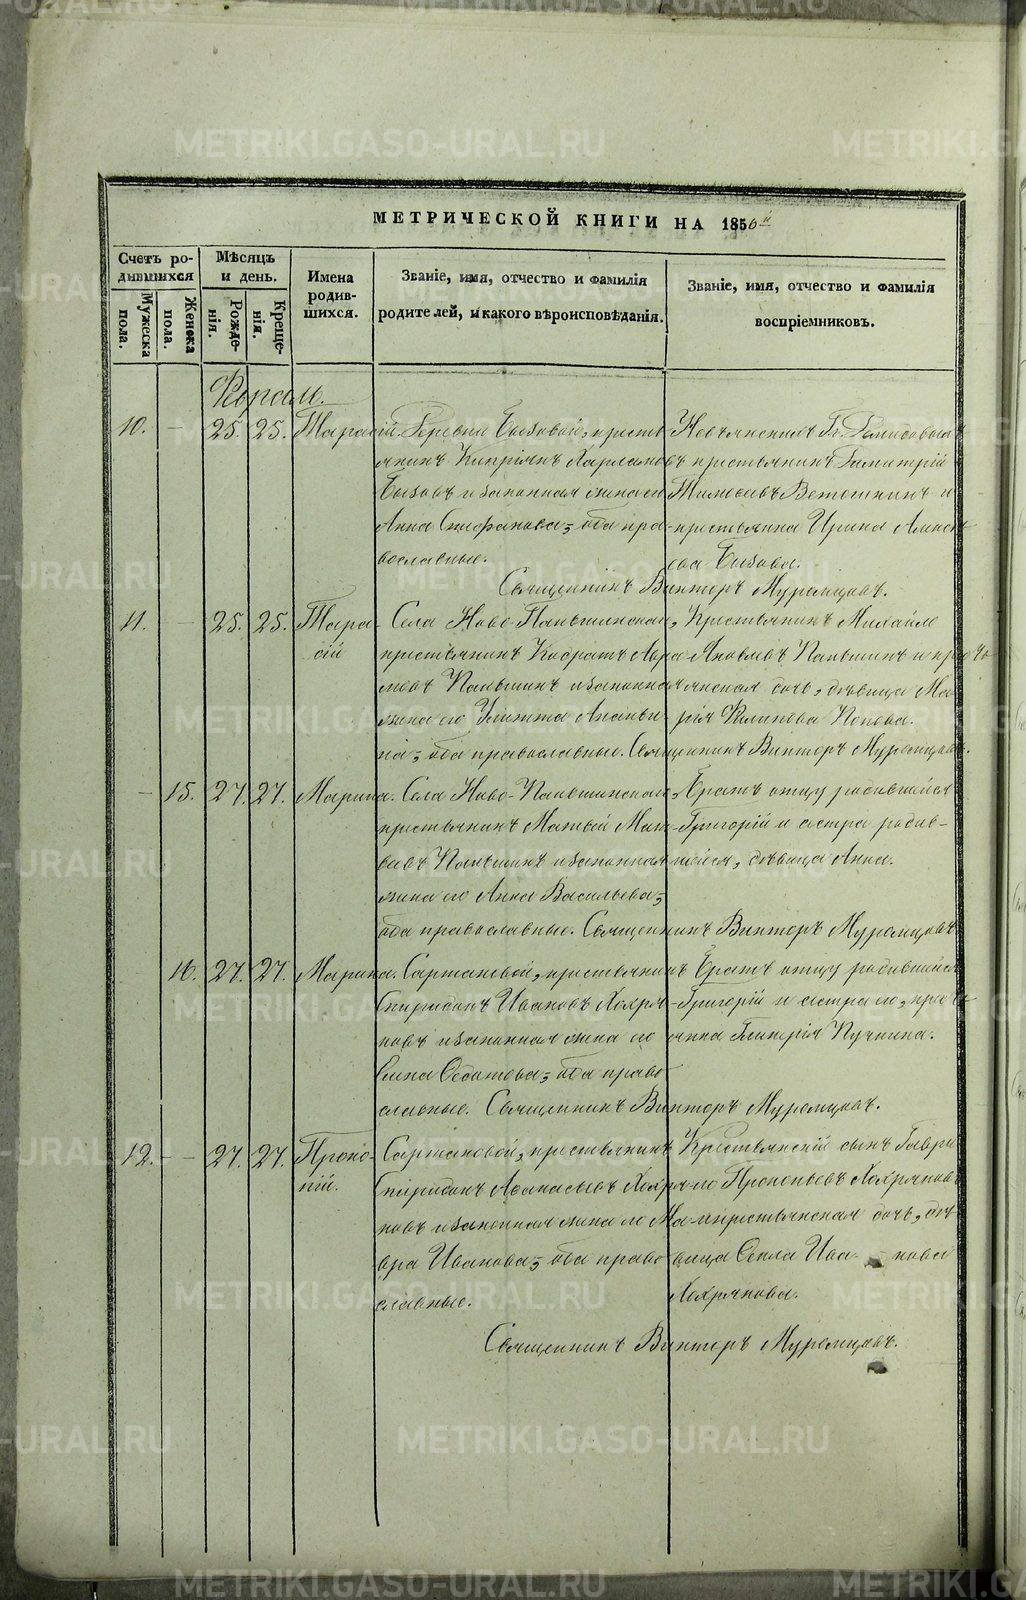 МЕТРИЧЕСКОЙ КНИГИ НА 1856й
Счетъ ро-
дившихся
Мужеска пола.
Женска пола.
Мѣсяцъ и день.
Рожде-
нія.
Креще-
нія.
Имена родив-
шихся.
Званіе, имя, отчество и фамилія
родителей, и какого вѣроисповѣданія.
Званіе, имя, отчество и фамилія
воспріемниковъ.
10. – 25. 25. Тарасій. Деревни Бызовой, кресть
янинъ Кипріянъ Харламовъ
Бызовъ и законная жена его
Анна Стефанова; оба пра-
вославные.
крестьянинъ Димитрій
Ветошкинъ и
крестьянка Ирина Алексѣ
ева Бызова.
Священникъ Викторъ Муромцовъ.
11. – 25. 25. Тара-
сій
Села Ново-Паньшинскаго,
крестьянинъ Кодратъ
Паньшинъ и законная
жена его Улитта Ананьи-
на; оба православные.
Крестьянинъ Михайло
Яковлевъ Паньшинъ и кресть
янская дочь, дѣвица Ма-
рія Филипова Попова.
Священникъ Викторъ Муромцовъ.
– 15. 27. 27. Марина. Села Ново-Паньшинскаго,
крестьянинъ Матвій Мат-
вѣевъ Паньшинъ и законная
жена его Анна Васильева;
оба православные.
Братъ отцу родившейся
Григорій и сестра родив-
шейся, дѣвица Анна.
Священникъ Викторъ Муромцовъ
16. 27. 27. Марина. Сартаковой, крестьянинъ
Спиридонъ Ивановъ Хохря-
ковъ и законная жена его
Федотова; оба право
славные.
Братъ отцу родившейся
Григорій и сестра его, кресть
янка Гликерія Пучкина.
Священникъ Викторъ Муромцовъ.
12. – – 27. 27. Проко-
пій.
Сартаковой, крестьянинъ
Спиридонъ Афанасьевъ Хохря-
ковъ и законная жена его Ма-
вра Иванова; оба право
славные.
Крестьянскій сынъ Гаври
ло Прокопьевъ Хохряковъ
и крестьянская дочь, дѣ-
вица Фекла Ива-нова
Хохрякова.
Священникъ Викторъ Муромцовъ.
METRIKI.GASO-URAL.RU